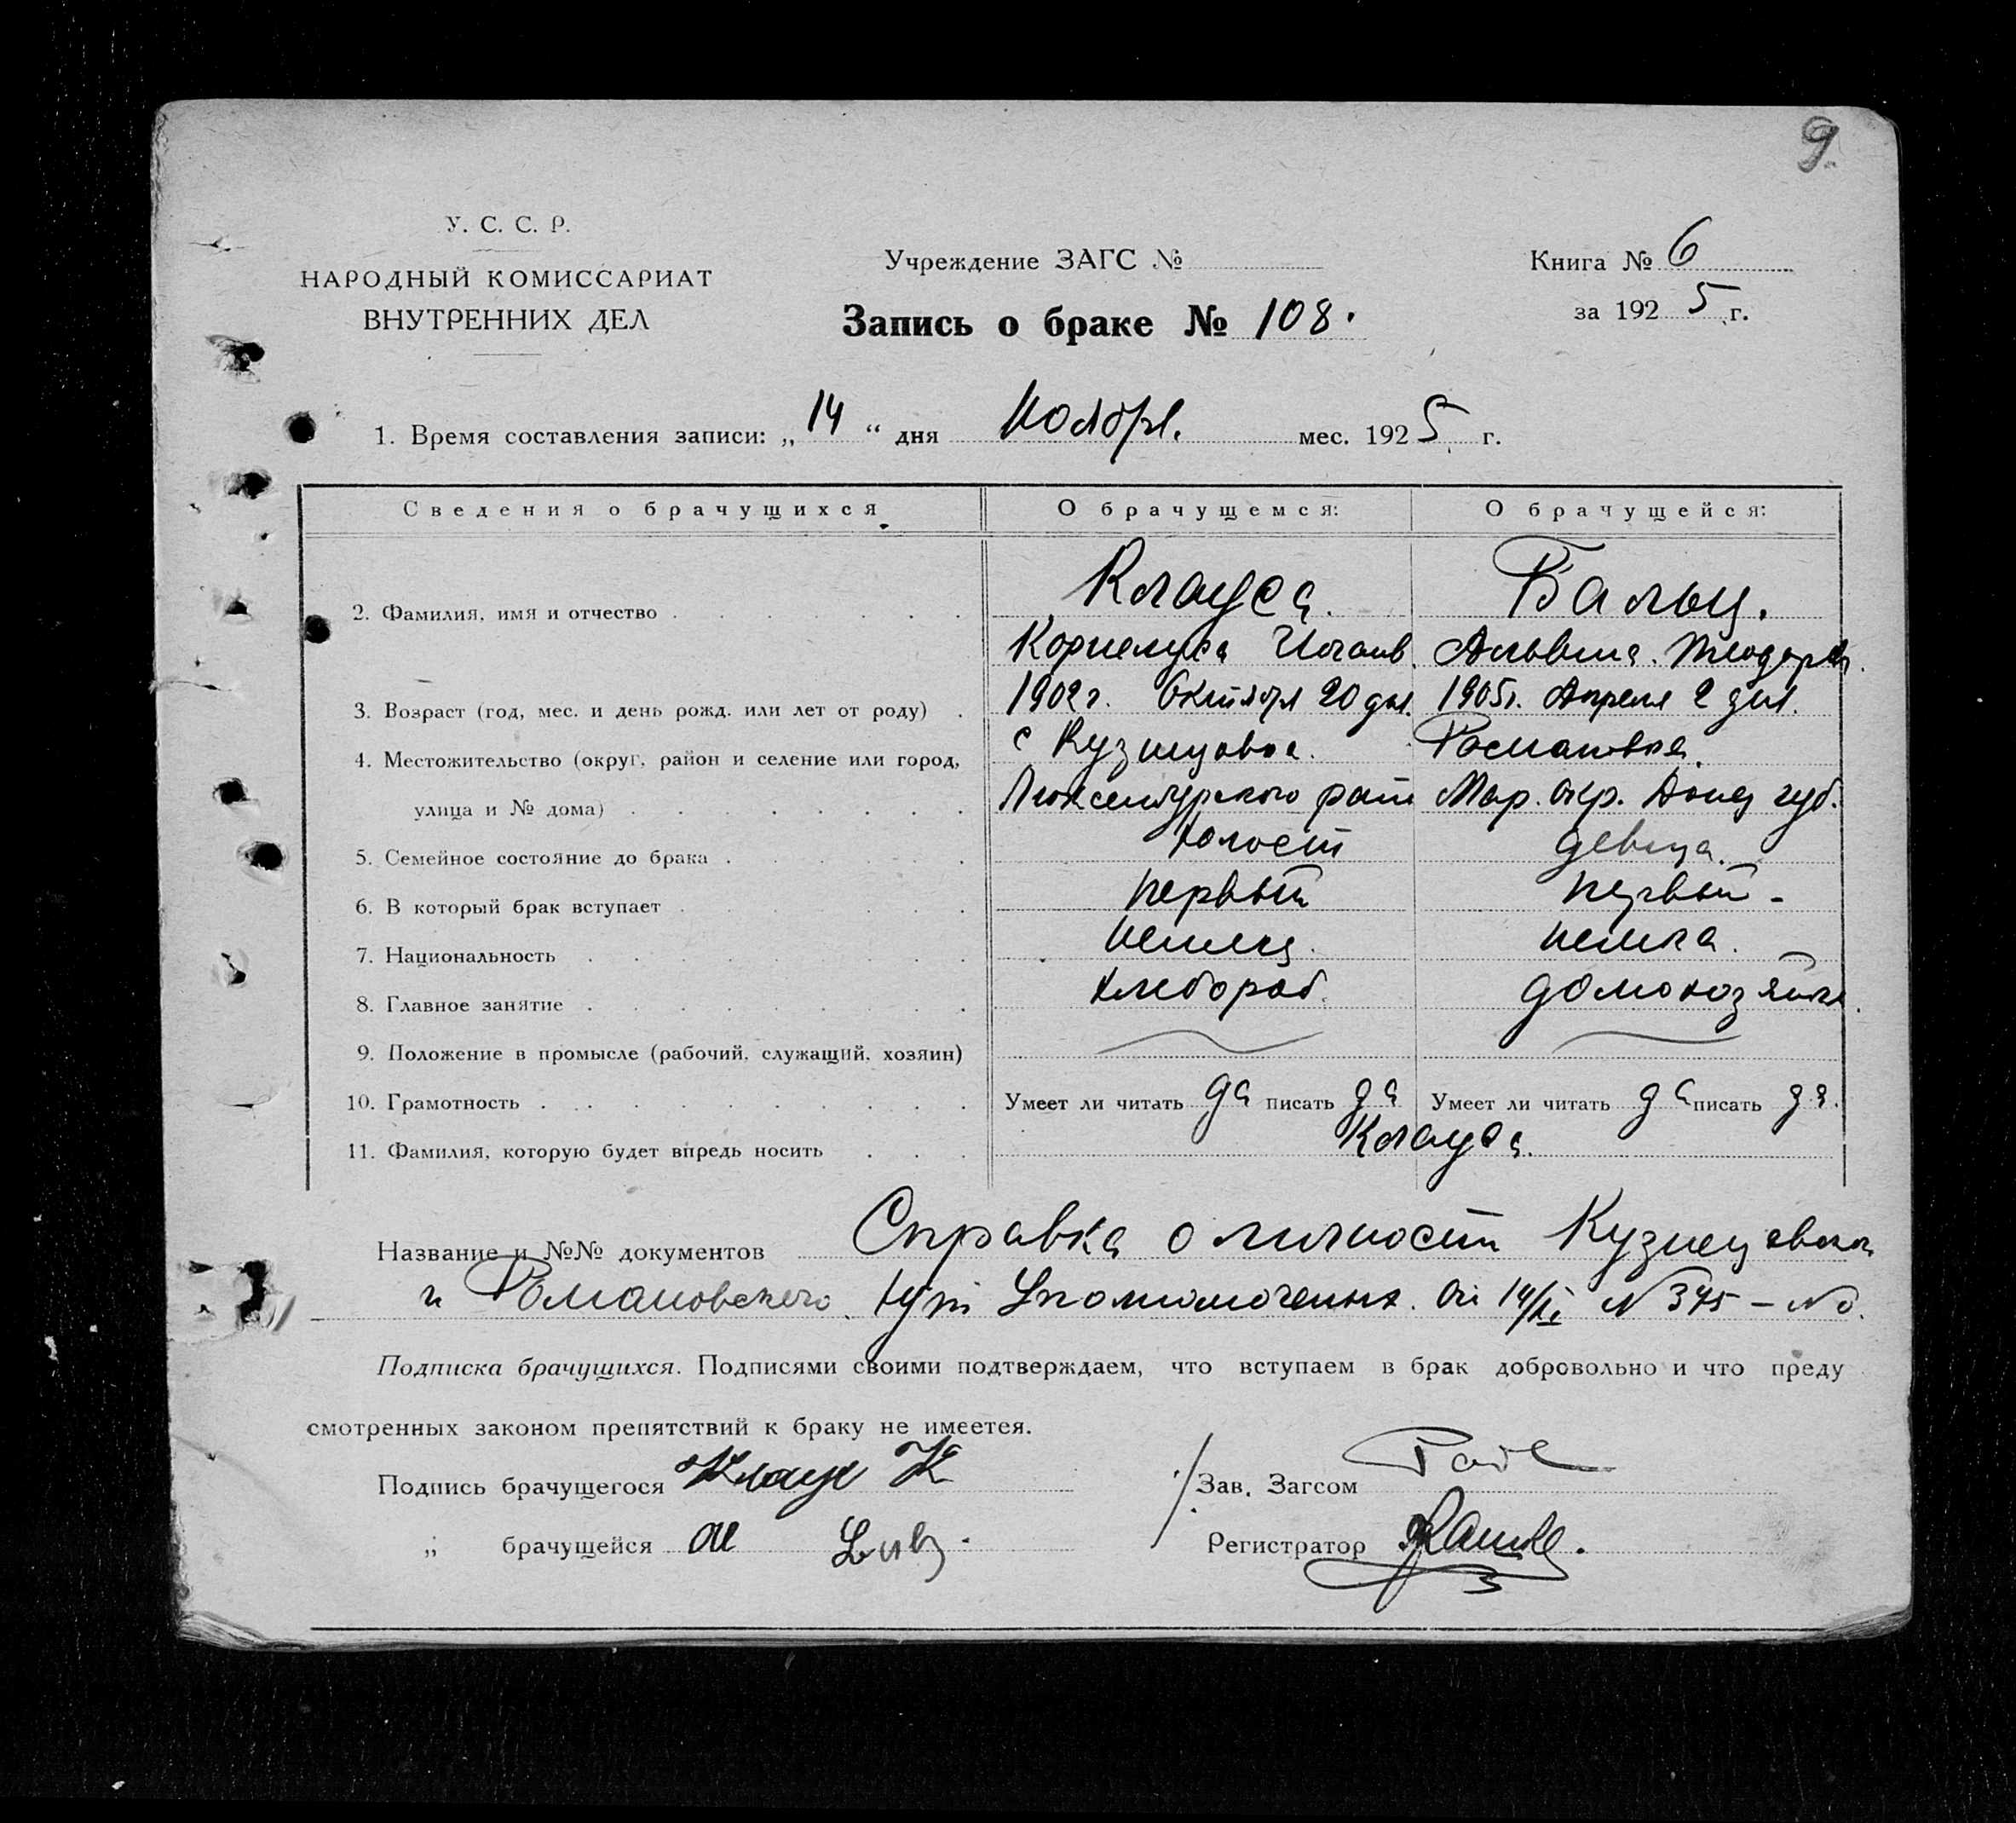 9.
У. С. С. Р.
НАРОДНЫЙ КОМИССАРИАТ
ВНУТРЕННИХ ДЕЛ
Учреждение ЗАГС №
Книга № 6
Запись о браке № 108.
за 192 5 г.
1. Время составления записи: „ 14 “ дня Ноября. мес. 192 5 г.
Сведения о брачущихся
О брачущемся:
О брачущейся:
2. Фамилия, имя и отчество
Клауса.
Бальц.
Корнелуса
Альвина.
3. Возраст (год, мес. и день рожд. или лет от роду)
1902 г. Октября 20 дня.
1905 г. Апреля 2 дня.
4. Местожительство (округ, район и селение или город,
с Кузнцовка.
Романовка.
улица и № дома)
Люксембурского
Мар. окр. Донец губ.
5. Семейное состояние до брака
холост
девица.
6. В который брак вступает
первый
первый -
7. Национальность
немец.
немка.
8. Главное занятие
хлебороб.
домохозяйка.
9. Положение в промысле (рабочий, служащий, хозяин)
10. Грамотность
Умеет ли читать да писать да
Умеет ли читать да писать да.
11. Фамилия, которую будет впредь носить
Клауса.
Название и №№ документов Справка о личности
и Романовского. хут Уполномоченых. От 14/XI N 345 –
Подписка брачущихся. Подписями своими подтверждаем, что вступаем в брак добровольно и что преду
смотренных законом препятствий к браку не имеетея.
Подпись брачущегося Клаус К
Зав. Загсом
„ брачущейся
Регистратор